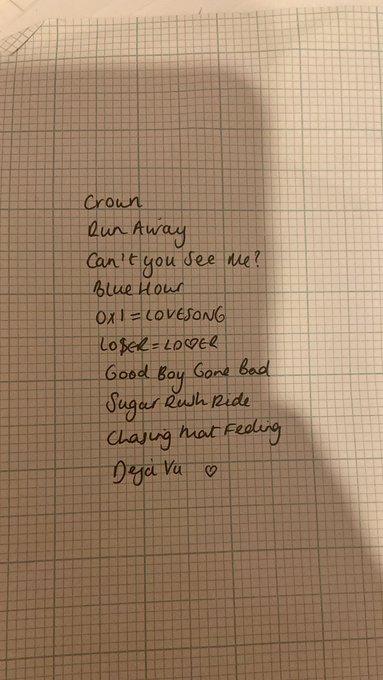 Crown
Run Away
Can't you See Me?
Blue Hour
0X1=LOVESONG
LO$ER=LO♡ER
Good Boy Gone Bad
Sugar Rush Ride
Chasing That Feeling
Deja Vu ♡